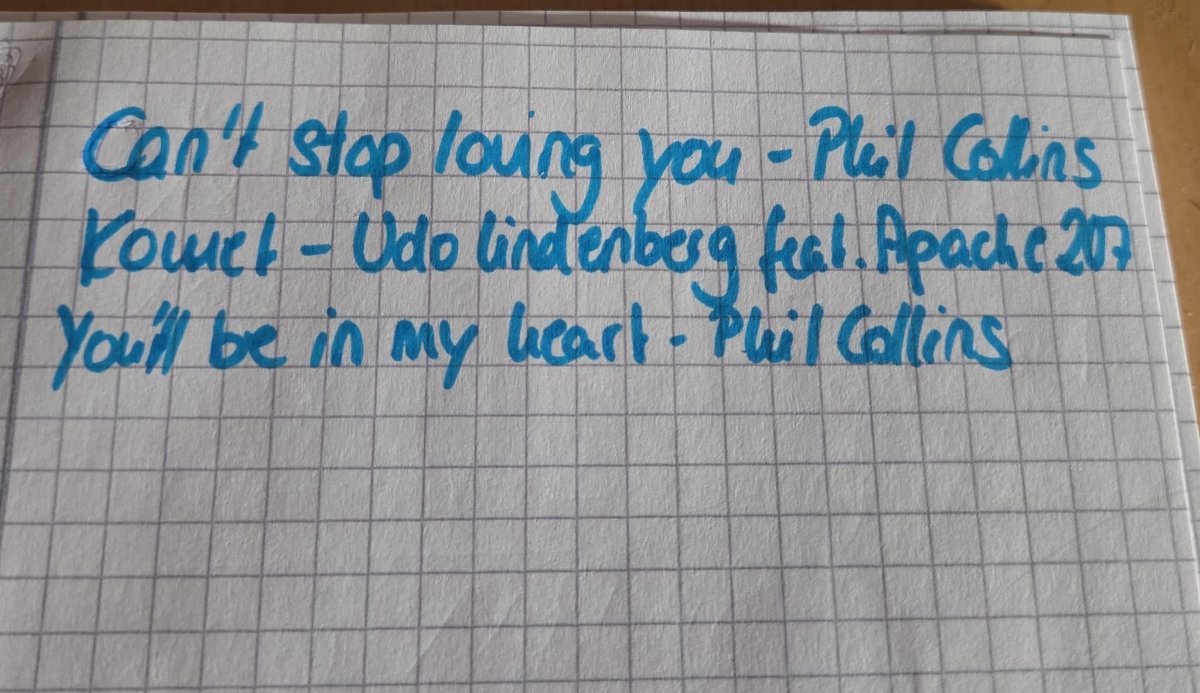 Can't stop loving you - Phil Collins
Komet - Udo Lindenberg feat. Apache 207
You'll be in my heart - Phil Collins